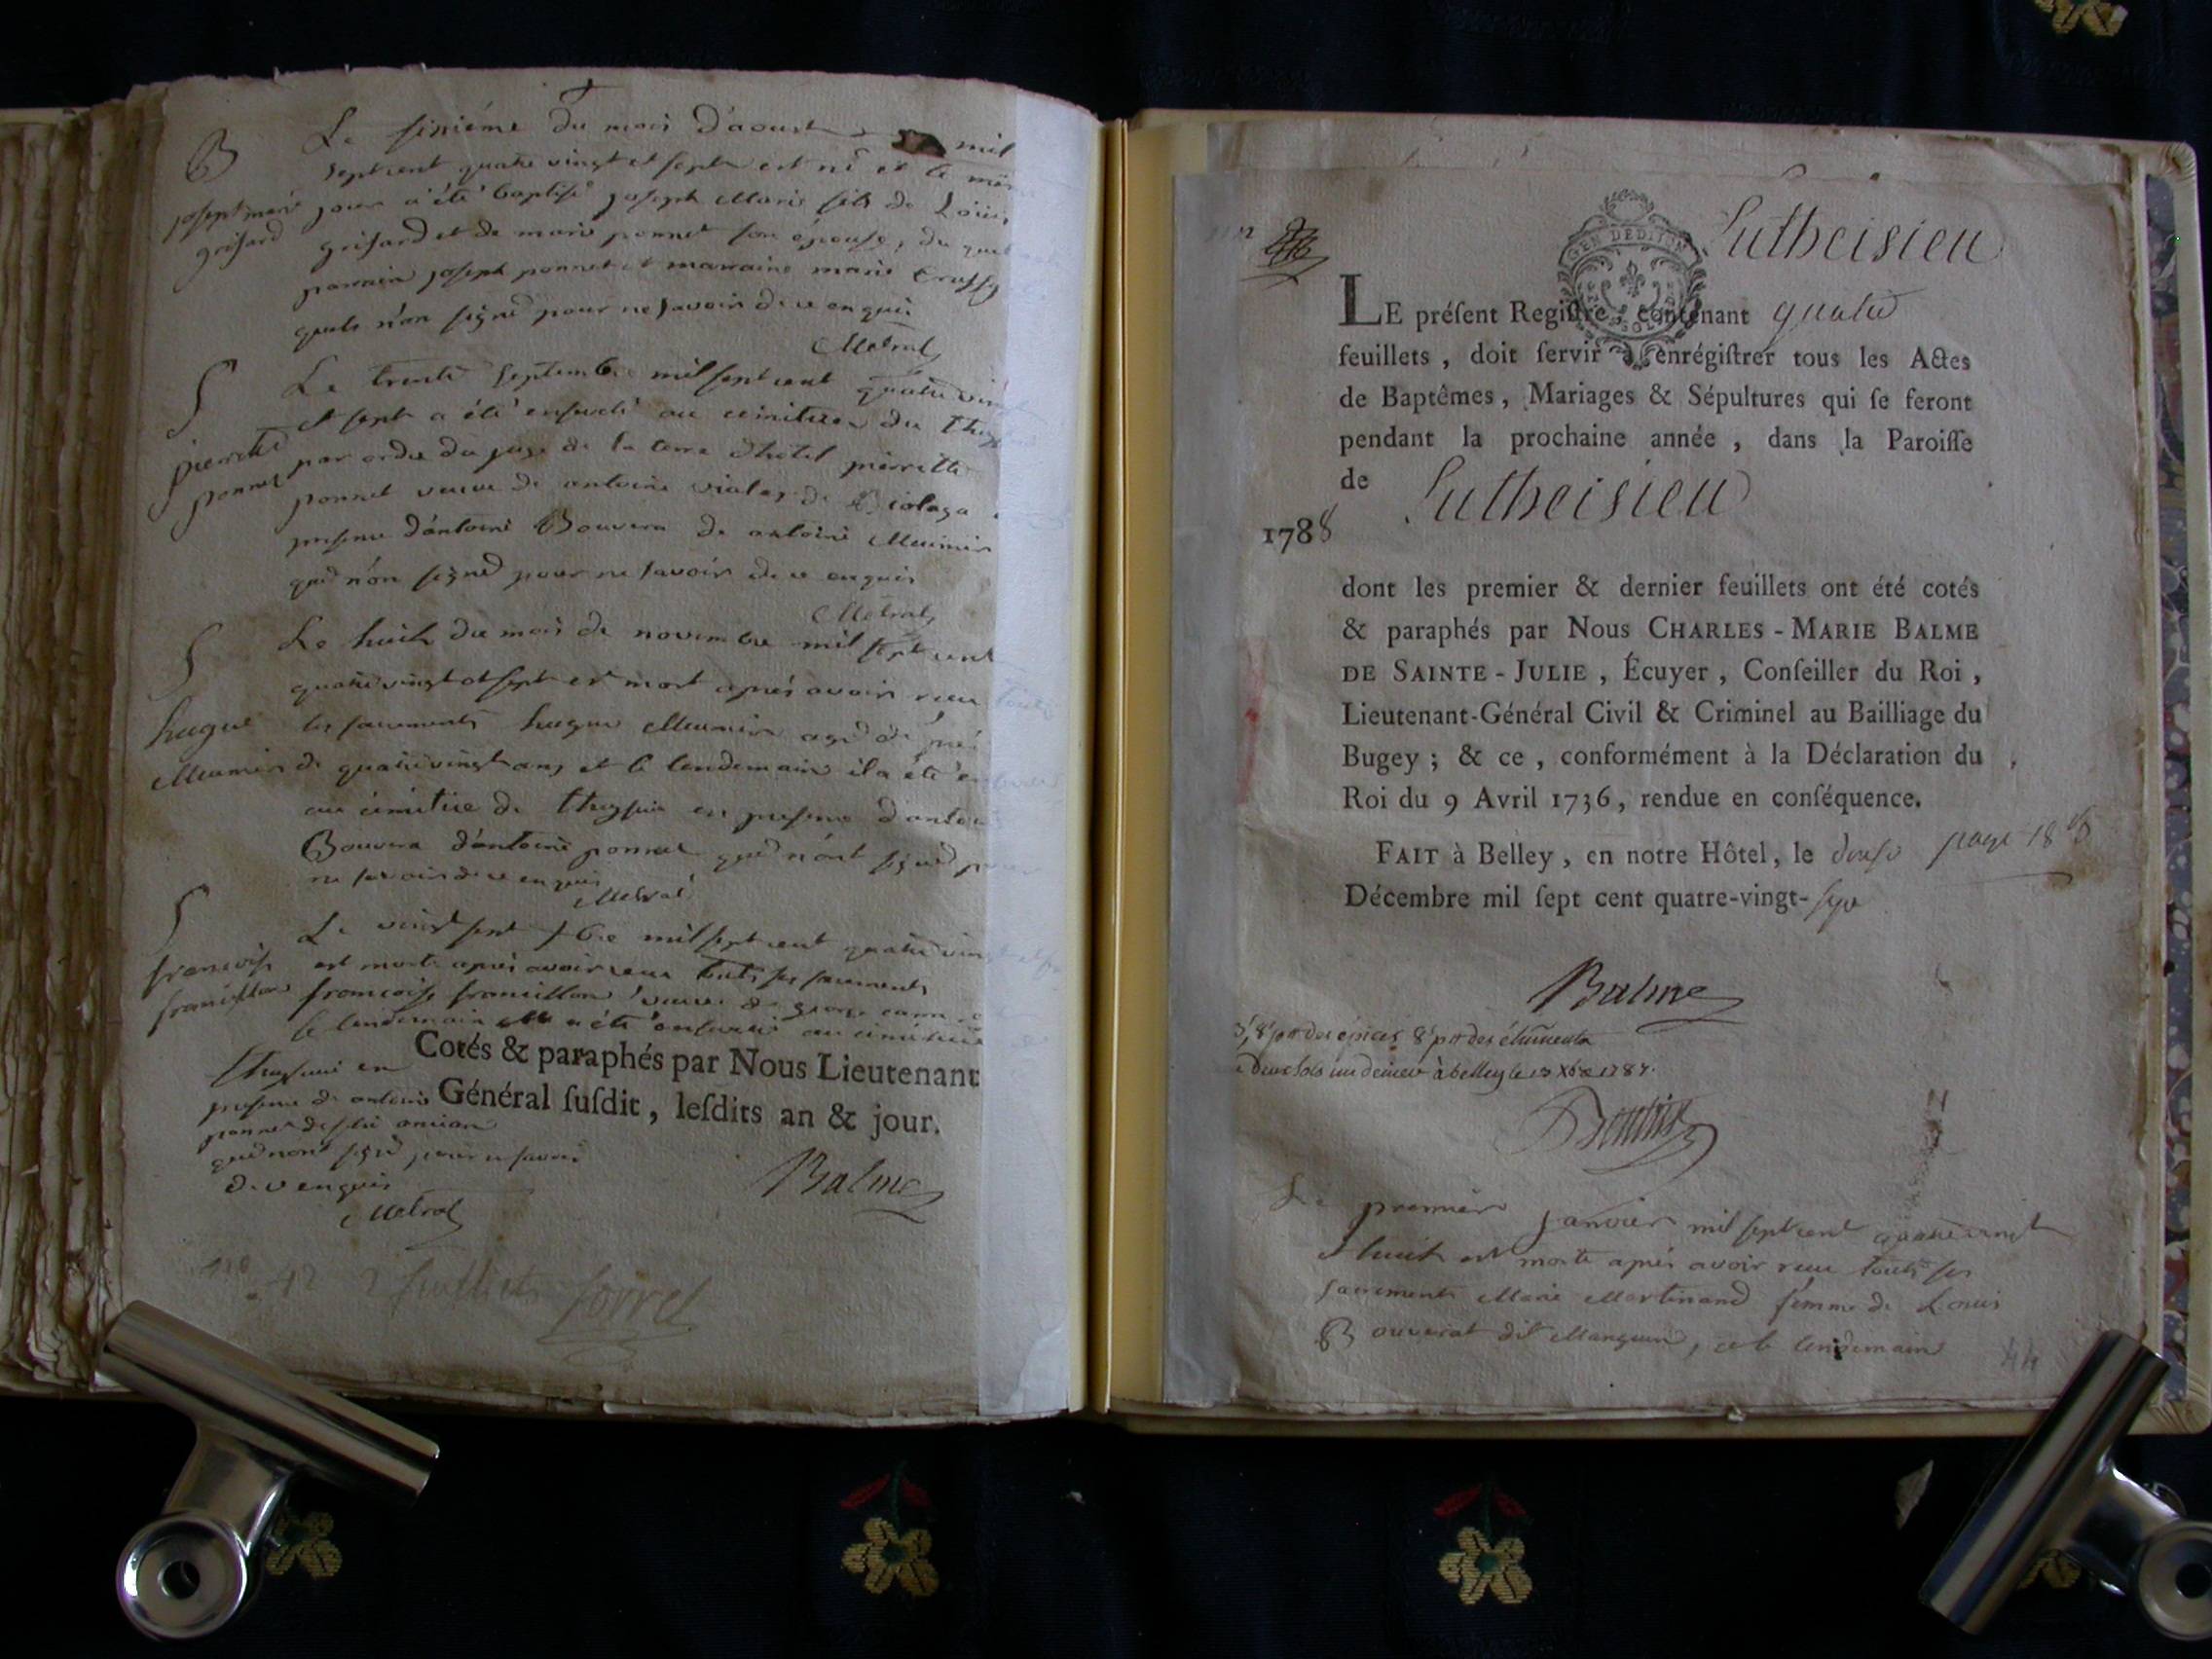 B
Le sixiéme du mois d'aoust mil
septcent quatre vingt et sept est né et le même
joseph marie jour a été baptisé joseph Marie fils de Loüis
grisard grisard et de marie ponnet son épouse, du quel
parrain joseph ponnet et marraine marie
quels n'on signé pour ne savoir de ce enquis
Metral
S
Le trente septembre mil sept cent quatre vin
et sept a été enseveli au cimitiere du
pierrette par ordre du juge de la terre pierrette
ponnet ponnet veuve de antoine de
presence d'antoine Bouvera de antoine Meunier
qui n'on signé pour ne savoir de ce enquis
Metral
S
Le huit du mois de novembre mil sept cent
quatrevingt et sept est mort aprés avoir recu
hugue les sacrements hugue Meunier agé de prés
Meunier de quatrevingt ans et le lendemain il a été
au cimitiere de en presence d'antoine
Bouvera d'antoine ponnet qui n'ont signé pour
ne savoir de ce enquis
Metral
S
Le vingt sept mil sept cent quatre vingt
francoise est morte aprés avoir recu touts ses sacrements
francillon francoise francillon veuve de
le lendemain elle a été enseveli au cimitiere
en
presence de antoine
ponnet
qui n'ont signé pour ne savoir
de ce enquis
Metral
Cotés & paraphés par Nous Lieutenant
Général ſuſdit, leſdits an & jour.
Balme
42 2 feuillets
Sutheisieu
LE préſent Regiſtre, contenant quatre
feuillets, doit ſervir à enrégiſtrer tous les Actes
de Baptêmes, Mariages & Sépultures qui ſe feront
pendant la prochaine année, dans la Paroiſſe
de Sutheisieu
1788
dont les premier & dernier feuillets ont été cotés
& paraphés par Nous CHARLES-MARIE BALME
DE SAINTE-JULIE, Écuyer, Conſeiller du Roi,
Lieutenant-Général Civil & Criminel au Bailliage du
Bugey; & ce, conformément à la Déclaration du
Roi du 9 Avril 1736, rendue en conſéquence.
FAIT à Belley, en notre Hôtel, le douse
Décembre mil ſept cent quatre-vingt-sept
Balme
des épices 8s ptt des
deux sols un denier à belley le 1787.
Le premier janvier mil sept cent quatre vingt
et huit est morte aprés avoir recu touts ses
sacrements Marie Martinand femme de Louis
Bouverat dit Manguin, et le lendemain
44